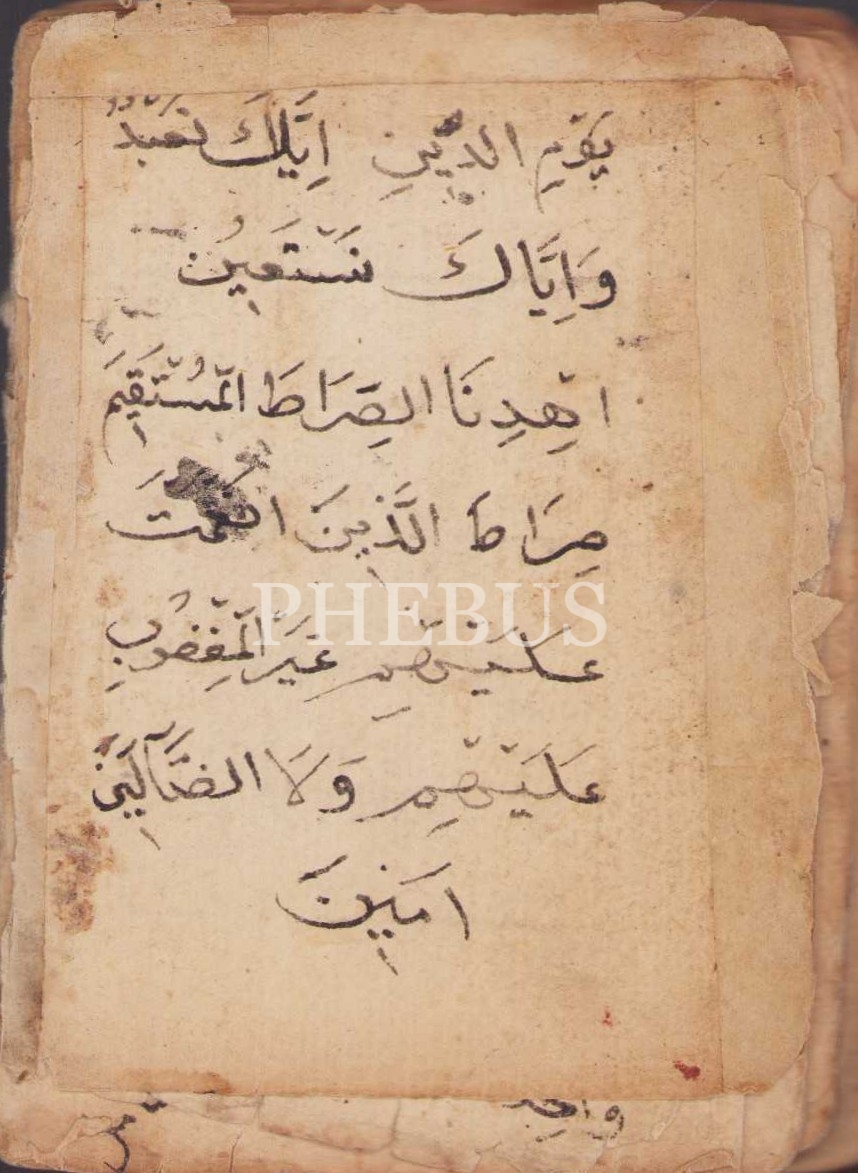 يَوْمِ الدِّينِ اِيَّاكَ نَعْبُدُ
وَاِيَّاكَ نَسْتَعِينُ
اهْدِنَا الصِّرَاطَ الْمُسْتَقِيمَ
صِرَاطَ الَّذِينَ انْعَمْتَ
PHEBUS
عَلَيْهِمْ غَيْرِ الْمَغْضُوبِ
عَلَيْهِمْ وَلَا الضَّآلِّينَ
امِينَ
واحد